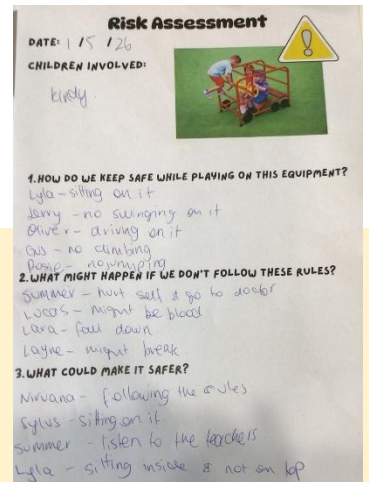 Risk Assessment
DATE: 1 / 5 / 26
CHILDREN INVOLVED:
kindy
1. HOW DO WE KEEP SAFE WHILE PLAYING ON THIS EQUIPMENT?
Lyla - sitting on it
Jerry - no swinging on it
Oliver - driving on it
Gus - no climbing
Rosie - no jumping
2. WHAT MIGHT HAPPEN IF WE DON'T FOLLOW THESE RULES?
Summer - hurt self & go to doctor
Lucas - might be blood
Lara - fall down
Layne - might break
3. WHAT COULD MAKE IT SAFER?
Nirvana - following the rules
Sylus - sitting on it
Summer - listen to the teachers
Lyla - sitting inside & not on top